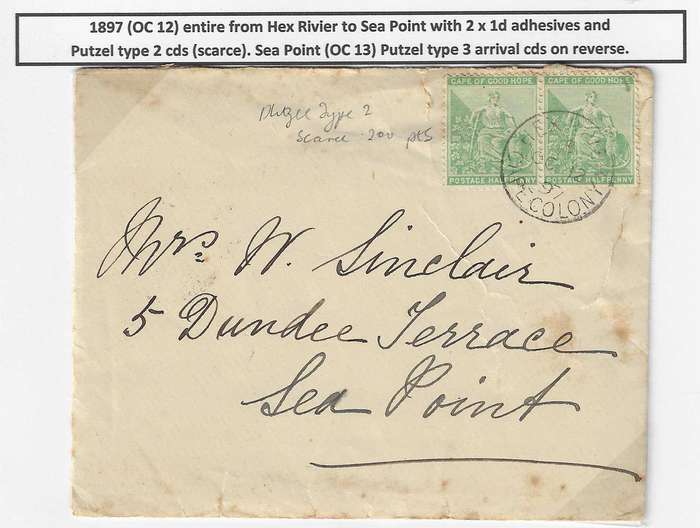 1897 (OC 12) entire from Hex Rivier to Sea Point with 2 x 1d adhesives and
Putzel type 2 cds (scarce). Sea Point (OC 13) Putzel type 3 arrival cds on reverse.
Type 2
scarce 200 pts
CAPE OF GOOD HOPE CAPE OF GOOD HOPE
POSTAGE HALFPENNY POSTAGE HALFPENNY
OC 12
97
COLONY
Mrs W. Sinclair
5 Dundee Terrace
Sea Point